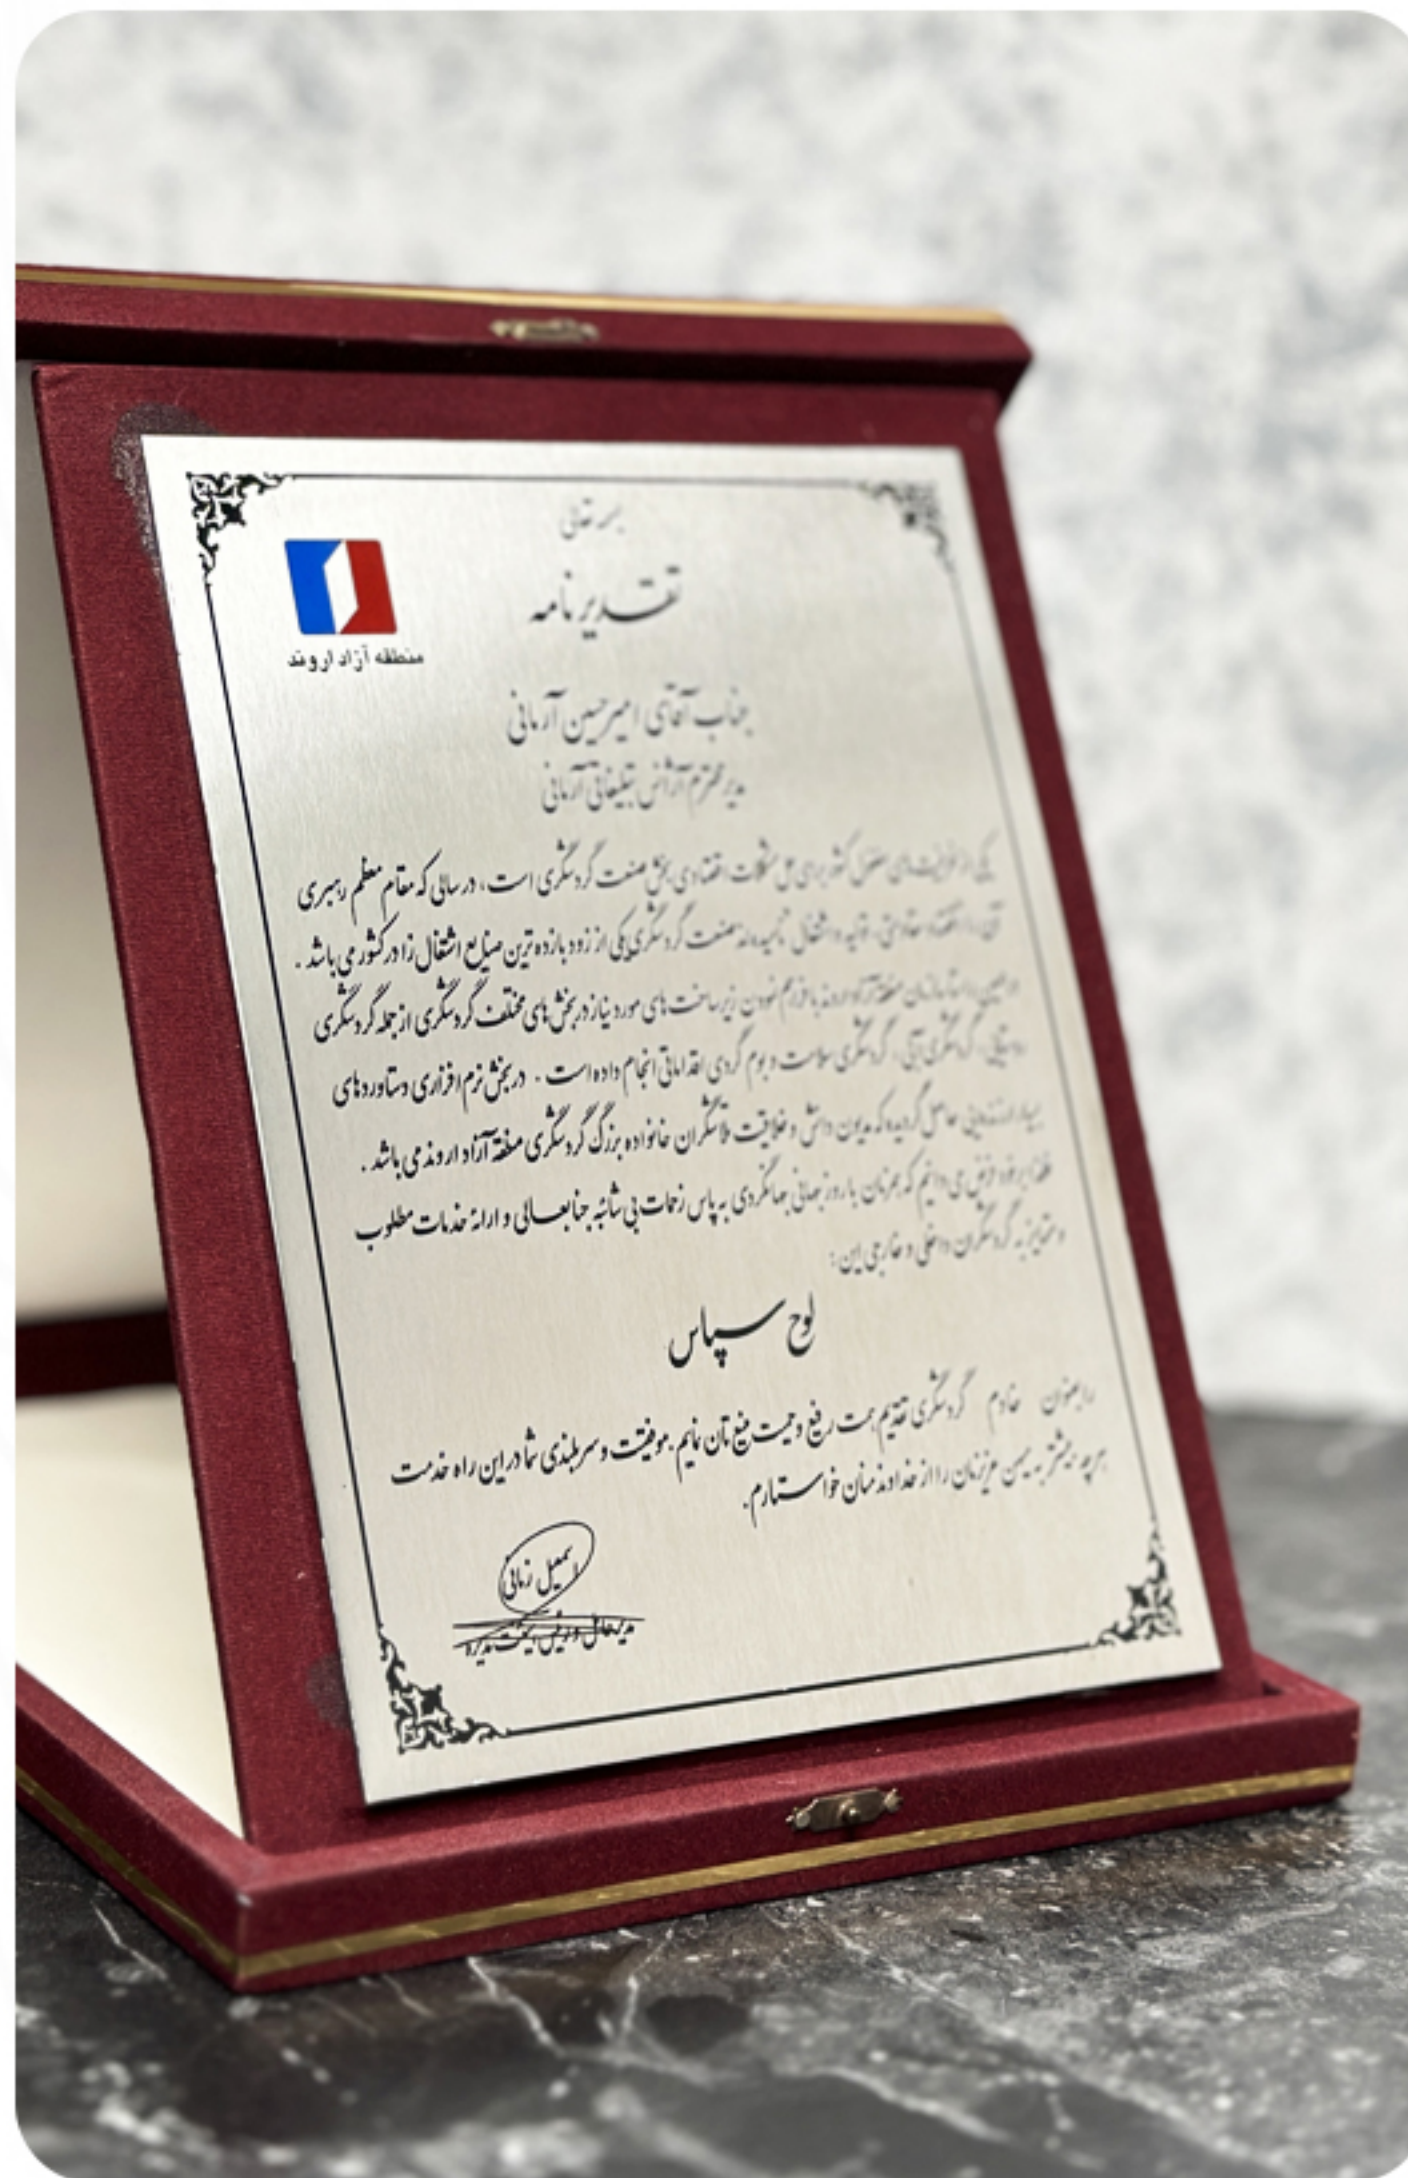 بسمه تعالی
تقدیرنامه
منطقه آزاد اروند
جناب آقای امیرحسین آرمانی
مدیر محترم آژانس تبلیغاتی آرمانی
یکی از ظرفیت‌های کشور برای حل مشکلات اقتصادی بخش صنعت گردشگری است، در سالی که مقام معظم رهبری
آن را اقتصاد مقاومتی، تولید و اشتغال نامیده‌اند صنعت گردشگری یکی از زود بازده ترین صنایع اشتغال زا در کشور می باشد .
در همین راستا سازمان منطقه آزاد اروند با فراهم نمودن زیرساخت های مورد نیاز در بخش های مختلف گردشگری از جمله گردشگری
گردشگری آبی، گردشگری سلامت و بوم گردی اقداماتی انجام داده است . در بخش نرم افزاری دستاوردهای
بسیار ارزنده‌ایی حاصل گردیده که مدیون دانش و خلاقیت تلاشگران خانواده بزرگ گردشگری منطقه آزاد اروند می باشد .
لذا بر خود فرض می دانیم که همزمان با روز جهانی جهانگردی به پاس زحمات بی شائبه جنابعالی و ارائه خدمات مطلوب
و متمایز به گردشگران داخلی و خارجی این :
لوح سپاس
را بعنوان خادم گردشگری تقدیم همت رفیع و حمیت منیع تان نمایم . موفقیت و سربلندی شما در این راه خدمت
هرچه بیشتر به میهن عزیزمان را از خداوند منان خواستارم.
اسمعیل زمانی
مدیرعامل و رئیس هیئت مدیره